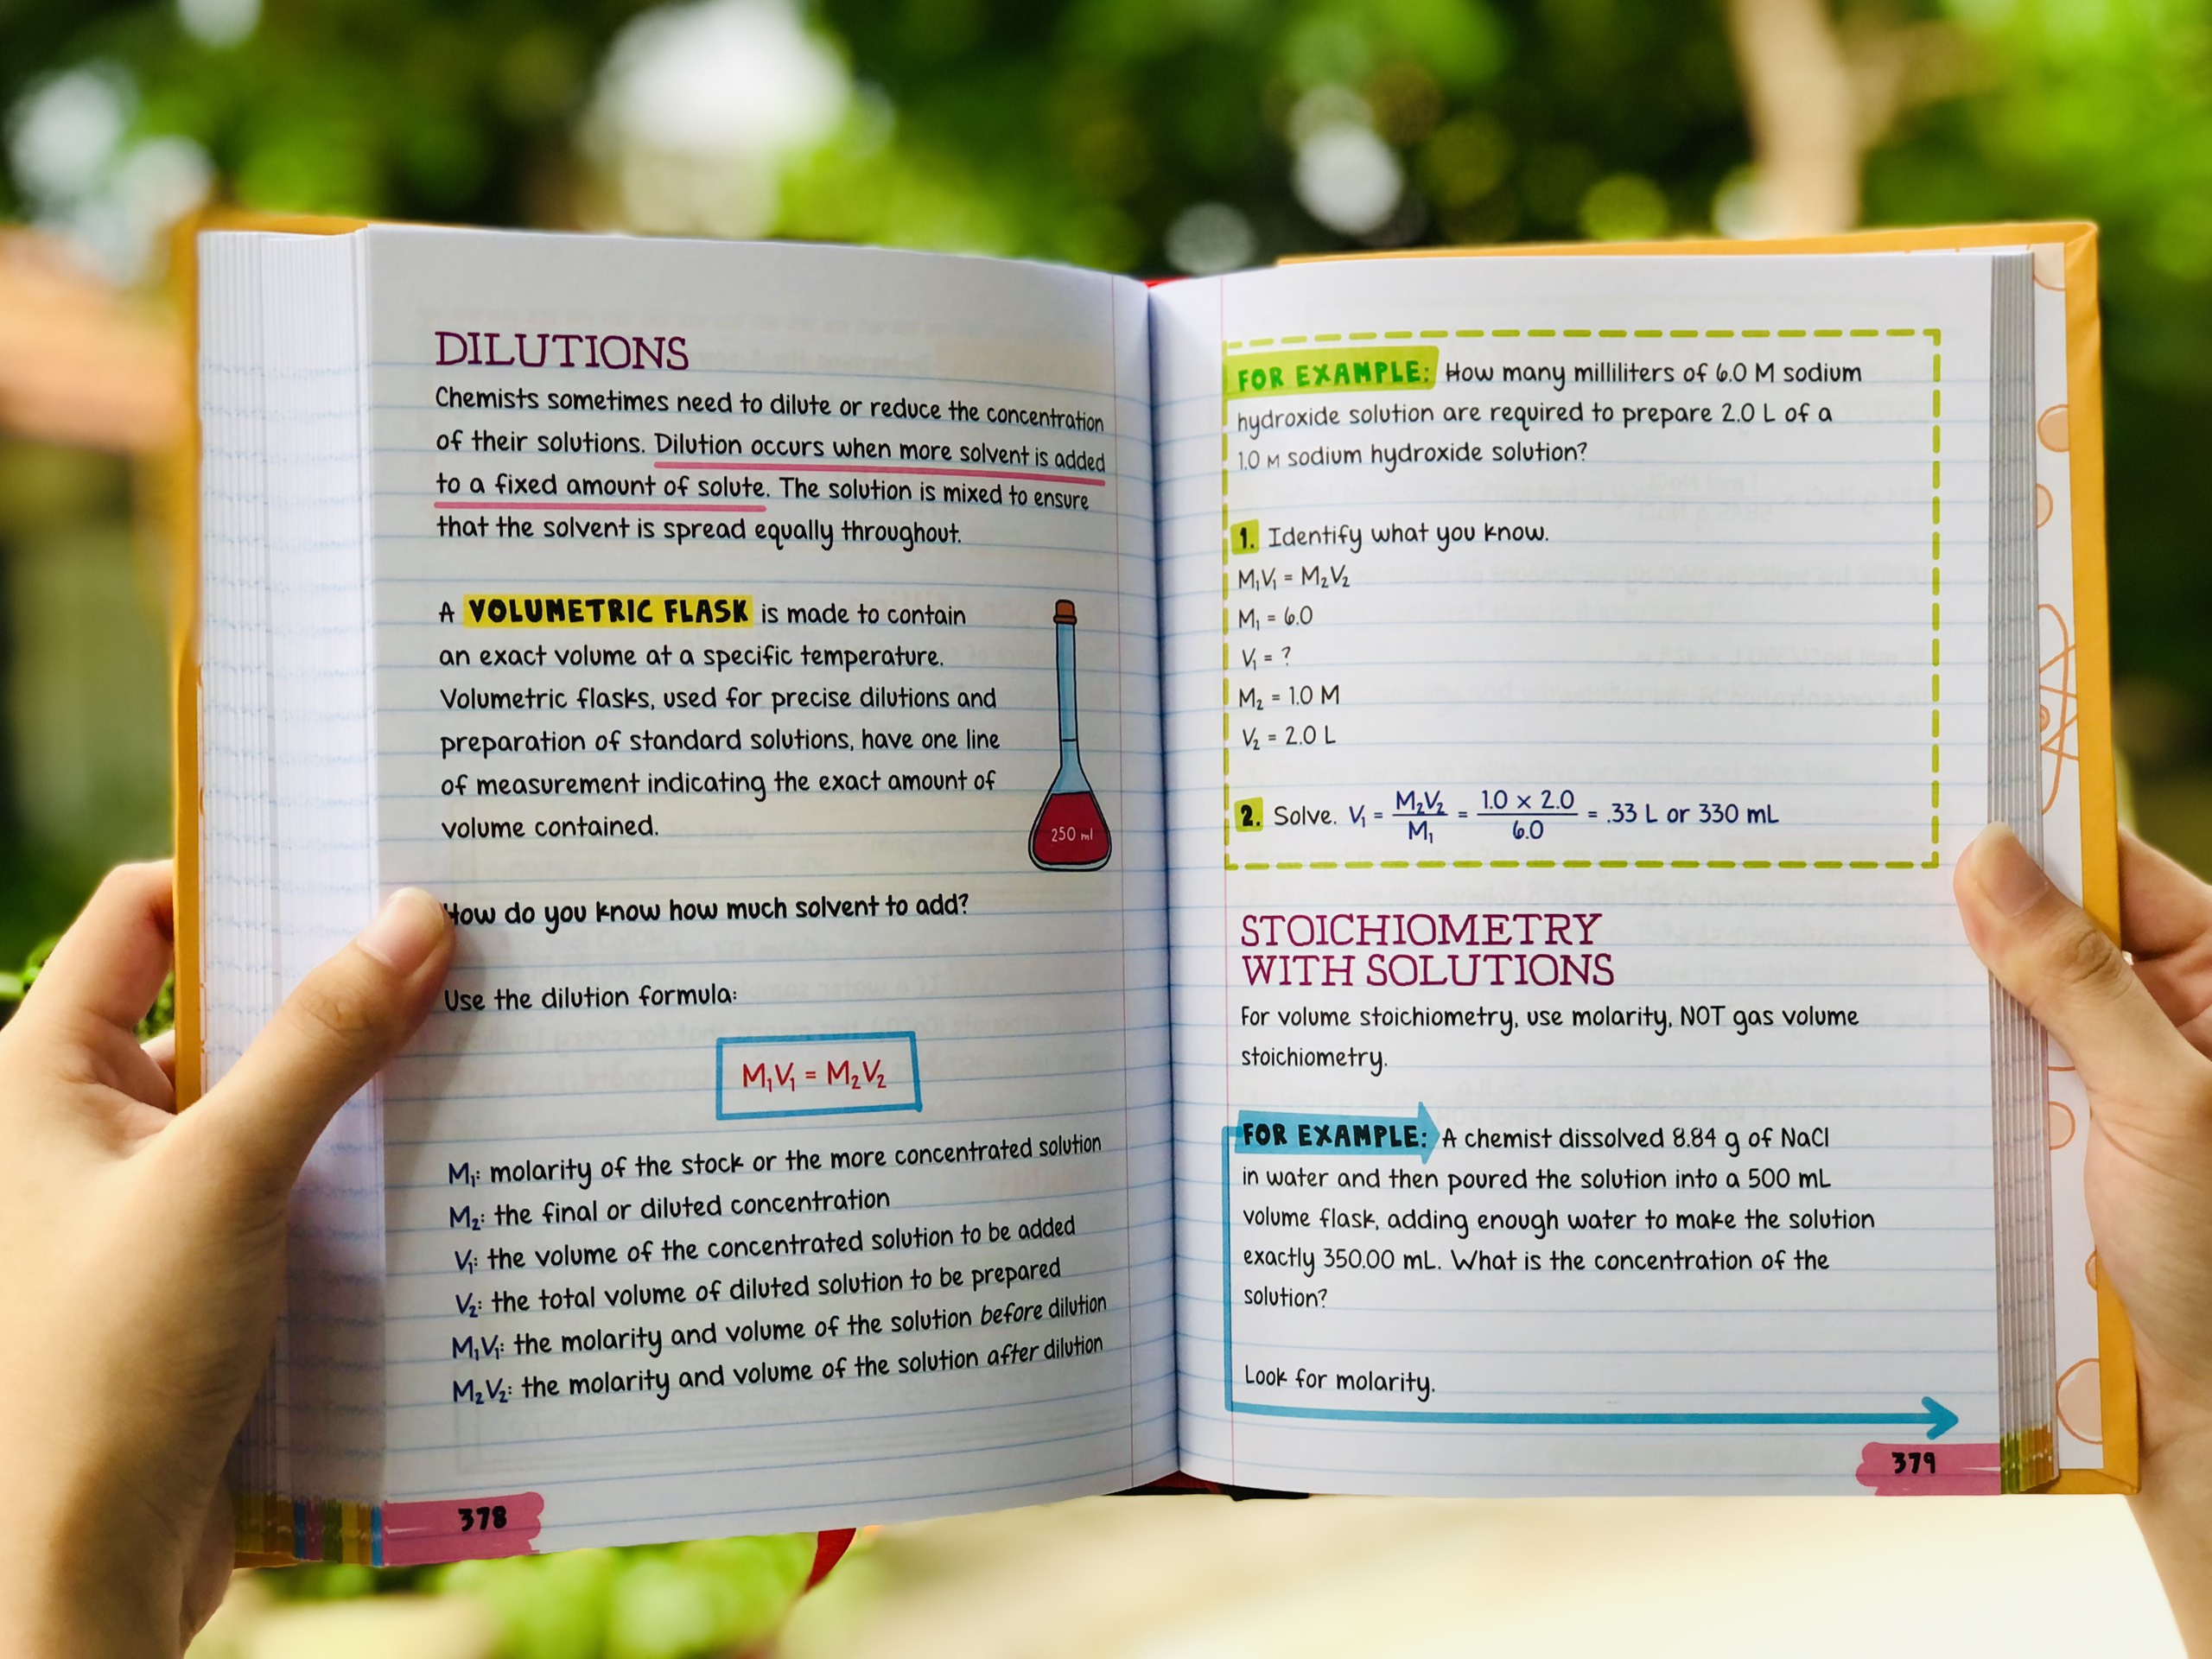 DILUTIONS
Chemists sometimes need to dilute or reduce the concentration
of their solutions. Dilution occurs when more solvent is added
to a fixed amount of solute. The solution is mixed to ensure
that the solvent is spread equally throughout.
A VOLUMETRIC FLASK is made to contain
an exact volume at a specific temperature.
Volumetric flasks, used for precise dilutions and
preparation of standard solutions, have one line
of measurement indicating the exact amount of
volume contained.
250 ml
How do you know how much solvent to add?
Use the dilution formula:
M₁V₁ = M₂V₂
M₁: molarity of the stock or the more concentrated solution
M₂: the final or diluted concentration
V₁: the volume of the concentrated solution to be added
V₂: the total volume of diluted solution to be prepared
M₁V₁: the molarity and volume of the solution before dilution
M₂V₂: the molarity and volume of the solution after dilution
378
FOR EXAMPLE: How many milliliters of 6.0 M sodium
hydroxide solution are required to prepare 2.0 L of a
1.0 M sodium hydroxide solution?
1. Identify what you know.
M₁V₁ = M₂V₂
M₁ = 6.0
V₁ = ?
M₂ = 1.0 M
V₂ = 2.0 L
2. Solve. V₁ = M₂V₂/M₁ = 1.0 × 2.0/6.0 = .33 L or 330 mL
STOICHIOMETRY
WITH SOLUTIONS
For volume stoichiometry, use molarity, NOT gas volume
stoichiometry.
FOR EXAMPLE: A chemist dissolved 8.84 g of NaCl
in water and then poured the solution into a 500 mL
volume flask, adding enough water to make the solution
exactly 350.00 mL. What is the concentration of the
solution?
Look for molarity.
379